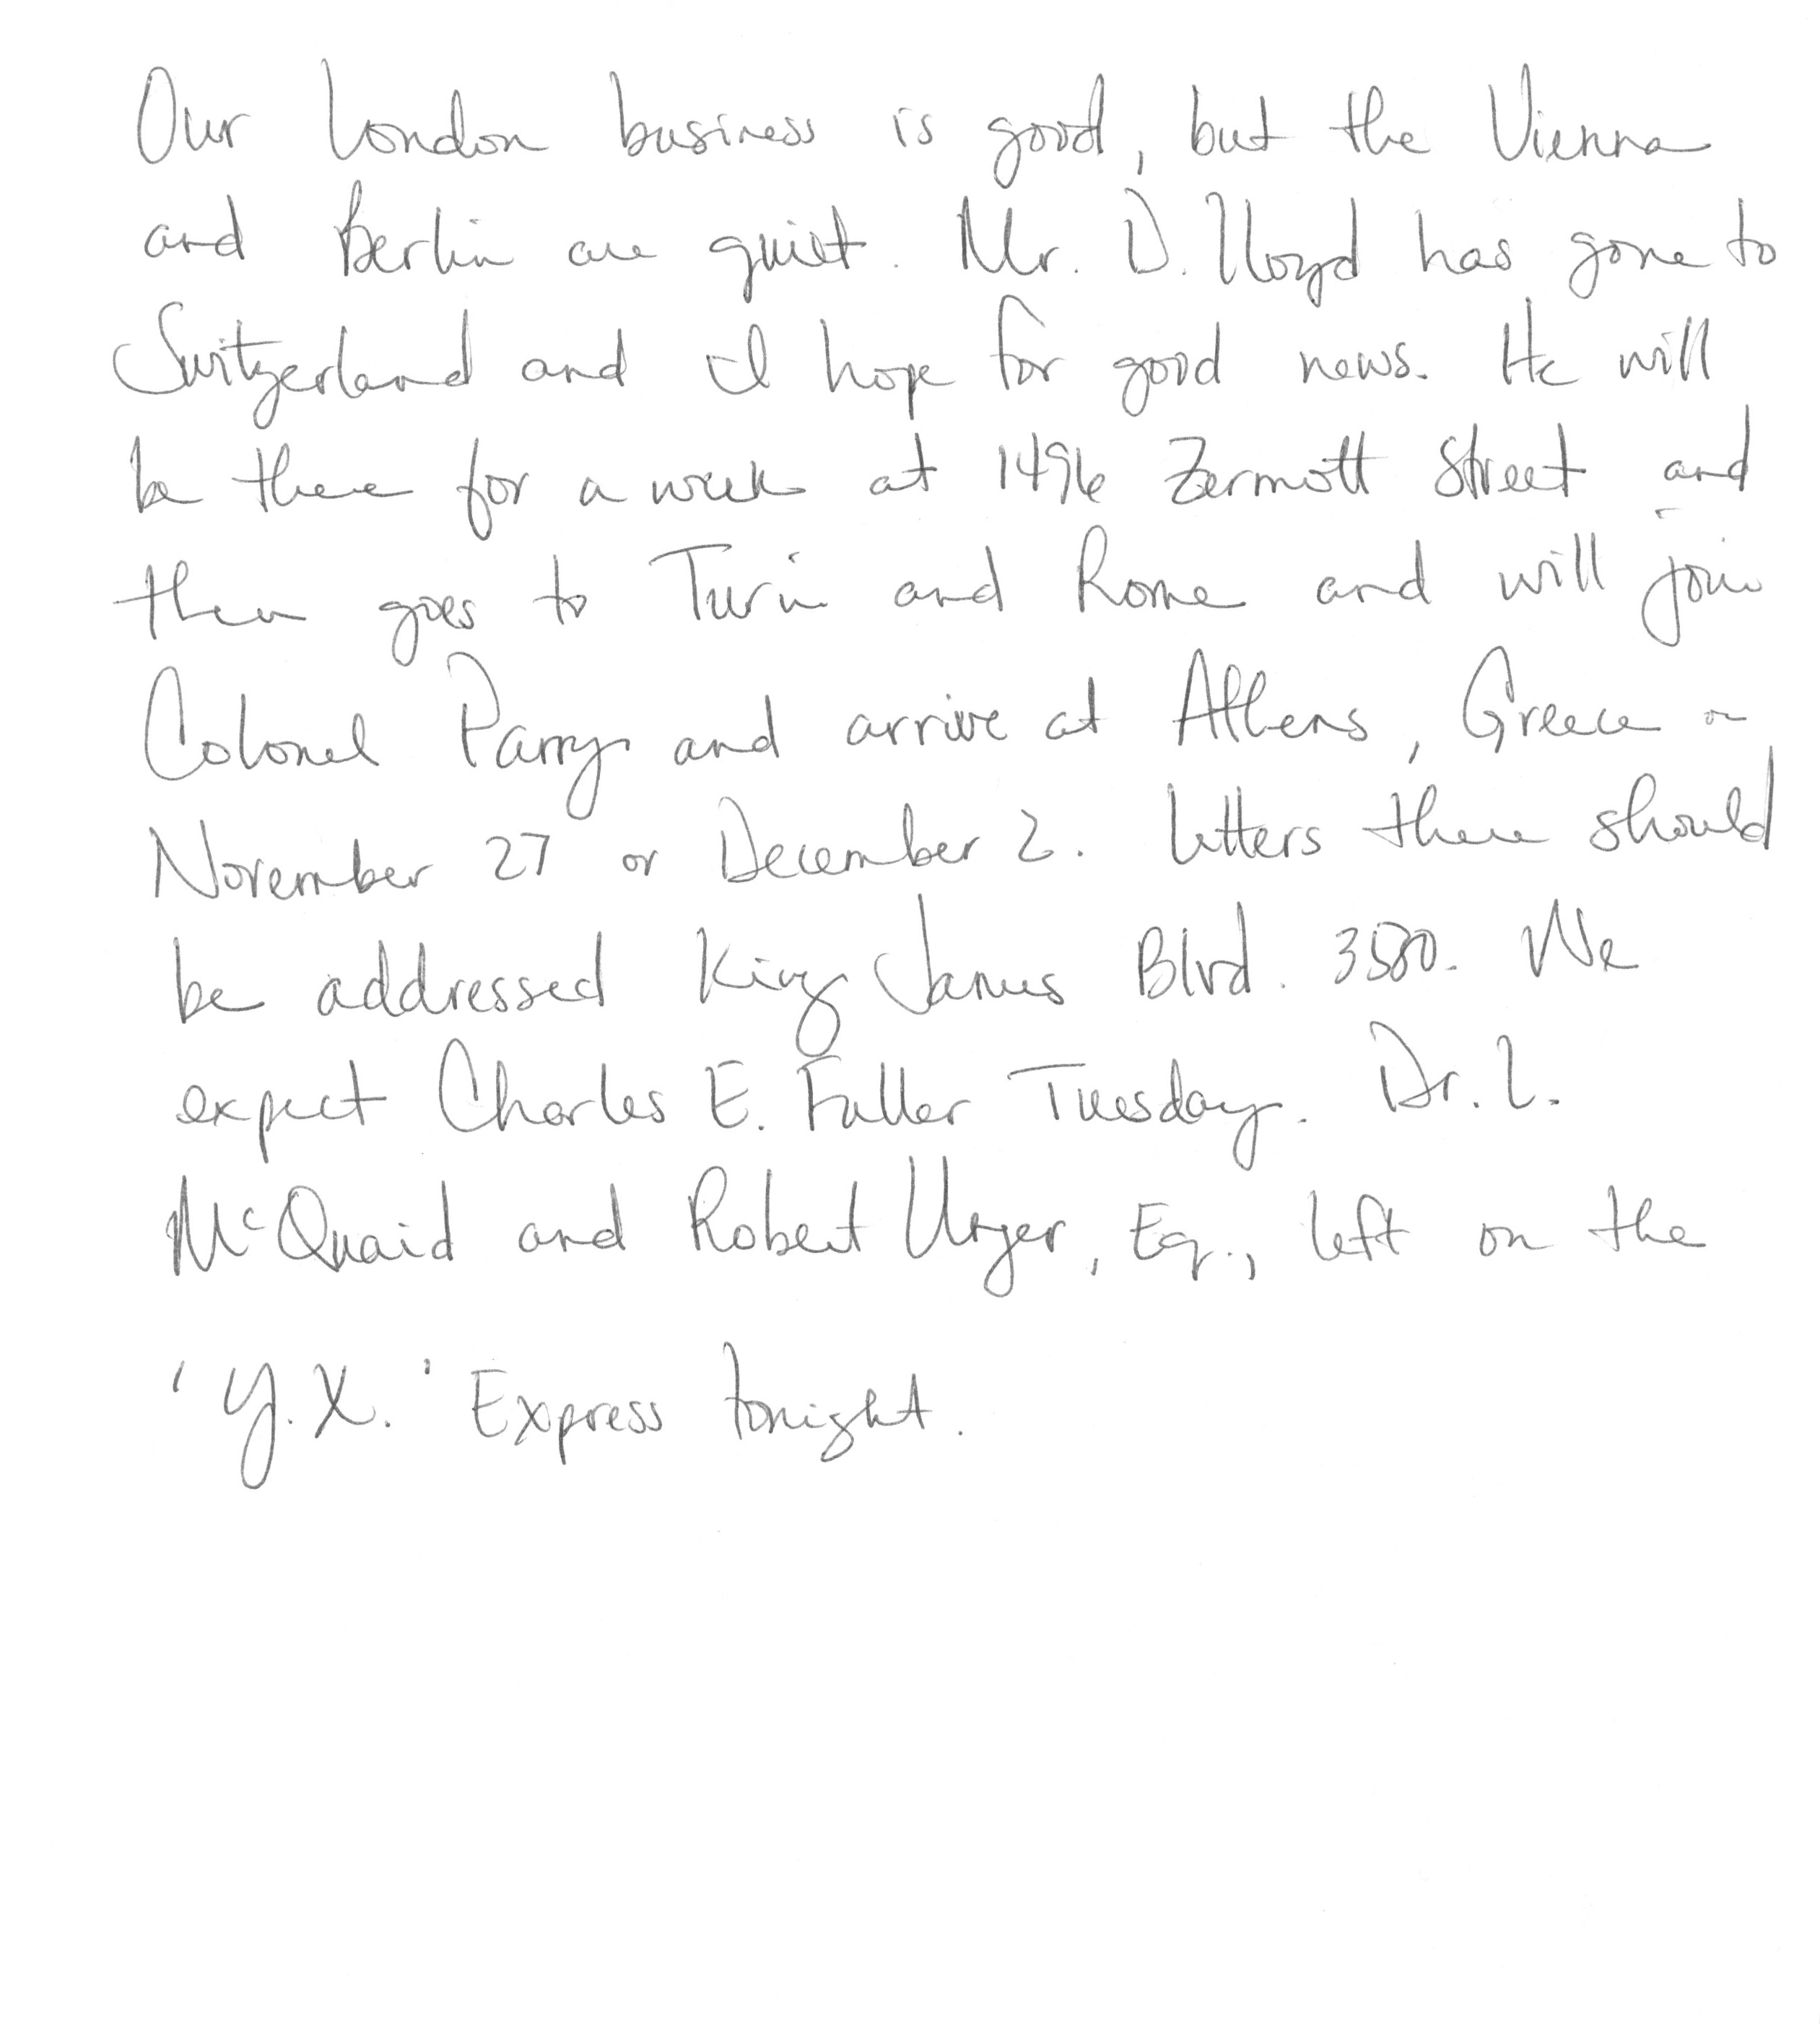 Our London business is good, but the Vienna
and Berlin are quiet. Mr. D. Lloyd has gone to
Switzerland and I hope for good news. He will
be there for a week at 1496 Zermott Street and
then goes to Turin and Rome and will join
Colonel Parry and arrive at Athens, Greece on
November 27 or December 2. Letters there should
be addressed King James Blvd. 3580. We
expect Charles E. Fuller Tuesday. Dr. L.
McQuaid and Robert Unger, Esq., left on the
'Y.X.' Express tonight.